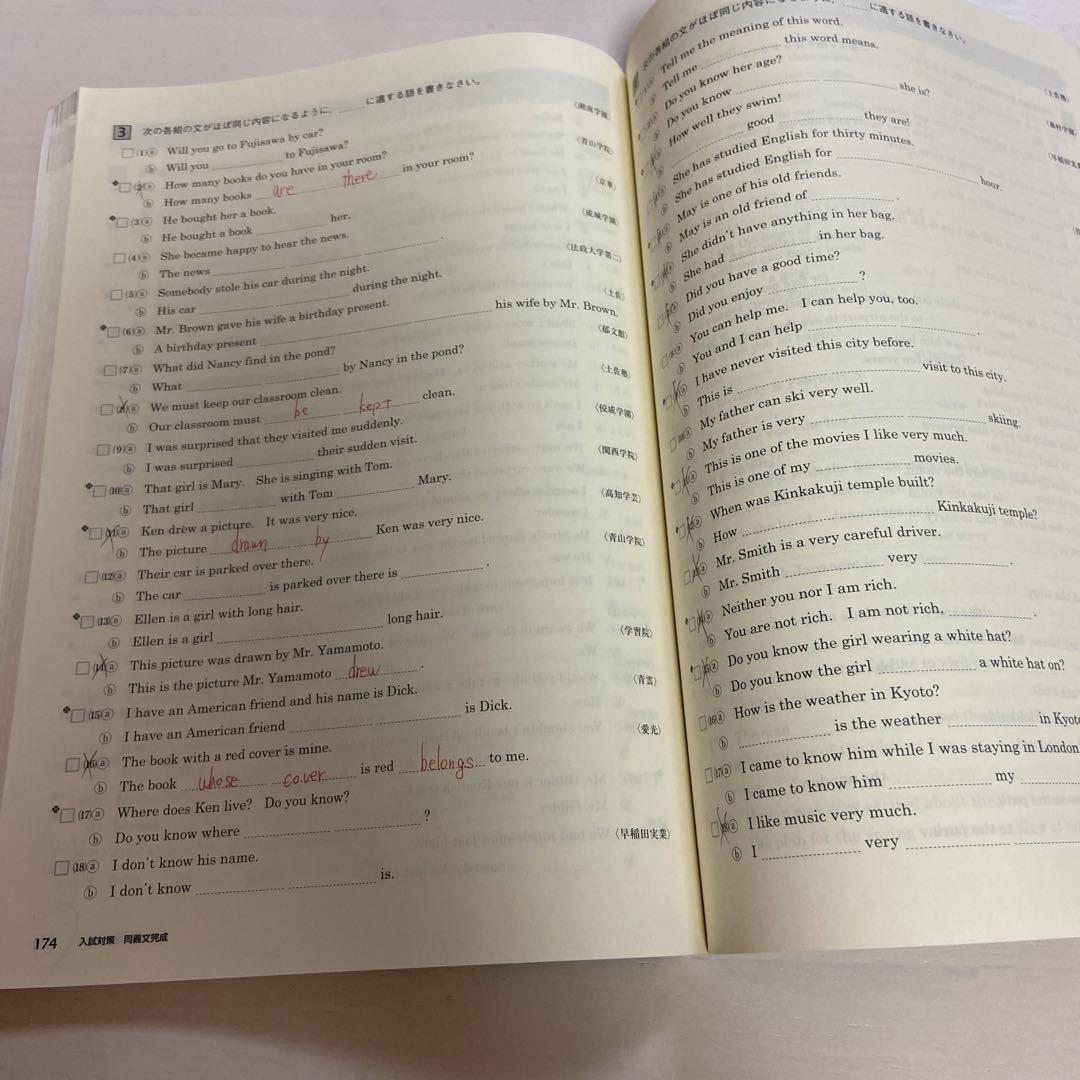 3 次の各組の文がほぼ同じ内容になるように, ______に適する語を書きなさい。
(1) ⓐ Will you go to Fujisawa by car? 〈湘南学園〉
ⓑ Will you ______ to Fujisawa?
(2) ⓐ How many books do you have in your room? 〈青山学院〉
ⓑ How many books are there in your room?
(3) ⓐ He bought her a book. 〈京華〉
ⓑ He bought a book ______ her.
(4) ⓐ She became happy to hear the news. 〈成城学園〉
ⓑ The news ______ ______ ______.
(5) ⓐ Somebody stole his car during the night. 〈法政大学第二〉
ⓑ His car ______ ______ during the night.
(6) ⓐ Mr. Brown gave his wife a birthday present. 〈土佐〉
ⓑ A birthday present ______ ______ ______ his wife by Mr. Brown.
(7) ⓐ What did Nancy find in the pond? 〈郁文館〉
ⓑ What ______ ______ by Nancy in the pond?
(8) ⓐ We must keep our classroom clean. 〈土佐塾〉
ⓑ Our classroom must be kept clean.
(9) ⓐ I was surprised that they visited me suddenly. 〈佼成学園〉
ⓑ I was surprised ______ their sudden visit.
(10) ⓐ That girl is Mary. She is singing with Tom. 〈関西学院〉
ⓑ That girl ______ with Tom ______ Mary.
(11) ⓐ Ken drew a picture. It was very nice. 〈高知学芸〉
ⓑ The picture drawn by Ken was very nice.
(12) ⓐ Their car is parked over there. 〈青山学院〉
ⓑ The car ______ is parked over there is ______.
(13) ⓐ Ellen is a girl with long hair.
ⓑ Ellen is a girl ______ ______ long hair.
(14) ⓐ This picture was drawn by Mr. Yamamoto. 〈学習院〉
ⓑ This is the picture Mr. Yamamoto drew.
(15) ⓐ I have an American friend and his name is Dick. 〈青雲〉
ⓑ I have an American friend ______ ______ is Dick.
(16) ⓐ The book with a red cover is mine. 〈愛光〉
ⓑ The book whose cover is red belongs to me.
(17) ⓐ Where does Ken live? Do you know?
ⓑ Do you know where ______ ______?
(18) ⓐ I don't know his name. 〈早稲田実業〉
ⓑ I don't know ______ ______ is.
174 入試対策 同義文完成
次の各組の文がほぼ同じ内容になるように, ______に適する語を書きなさい。
ⓐ Tell me the meaning of this word.
ⓑ Tell me ______ this word means. 〈土佐塾〉
ⓐ Do you know her age?
ⓑ Do you know ______ ______ she is?
ⓐ How well they swim!
ⓑ ______ good ______ they are!
ⓐ She has studied English for thirty minutes. 〈早稲田実
ⓑ She has studied English for ______ ______ hour.
ⓐ May is one of his old friends.
ⓑ May is an old friend of ______.
ⓐ She didn't have anything in her bag.
ⓑ She had ______ in her bag.
ⓐ Did you have a good time?
ⓑ Did you enjoy ______?
(8) ⓐ You can help me. I can help you, too.
ⓑ You and I can help ______ ______.
ⓐ I have never visited this city before.
ⓑ This is ______ ______ visit to this city.
(10) ⓐ My father can ski very well.
ⓑ My father is very ______ ______ skiing.
ⓐ This is one of the movies I like very much.
ⓑ This is one of my ______ movies.
ⓐ When was Kinkakuji temple built?
ⓑ How ______ ______ Kinkakuji temple?
ⓐ Mr. Smith is a very careful driver.
ⓑ Mr. Smith ______ very ______.
ⓐ Neither you nor I am rich.
ⓑ You are not rich. I am not rich, ______.
ⓐ Do you know the girl wearing a white hat?
ⓑ Do you know the girl ______ a white hat on?
(16) ⓐ How is the weather in Kyoto?
ⓑ ______ is the weather ______ in Kyoto
(17) ⓐ I came to know him while I was staying in London
ⓑ I came to know him ______ my ______
ⓐ I like music very much.
ⓑ I ______ very ______ ______